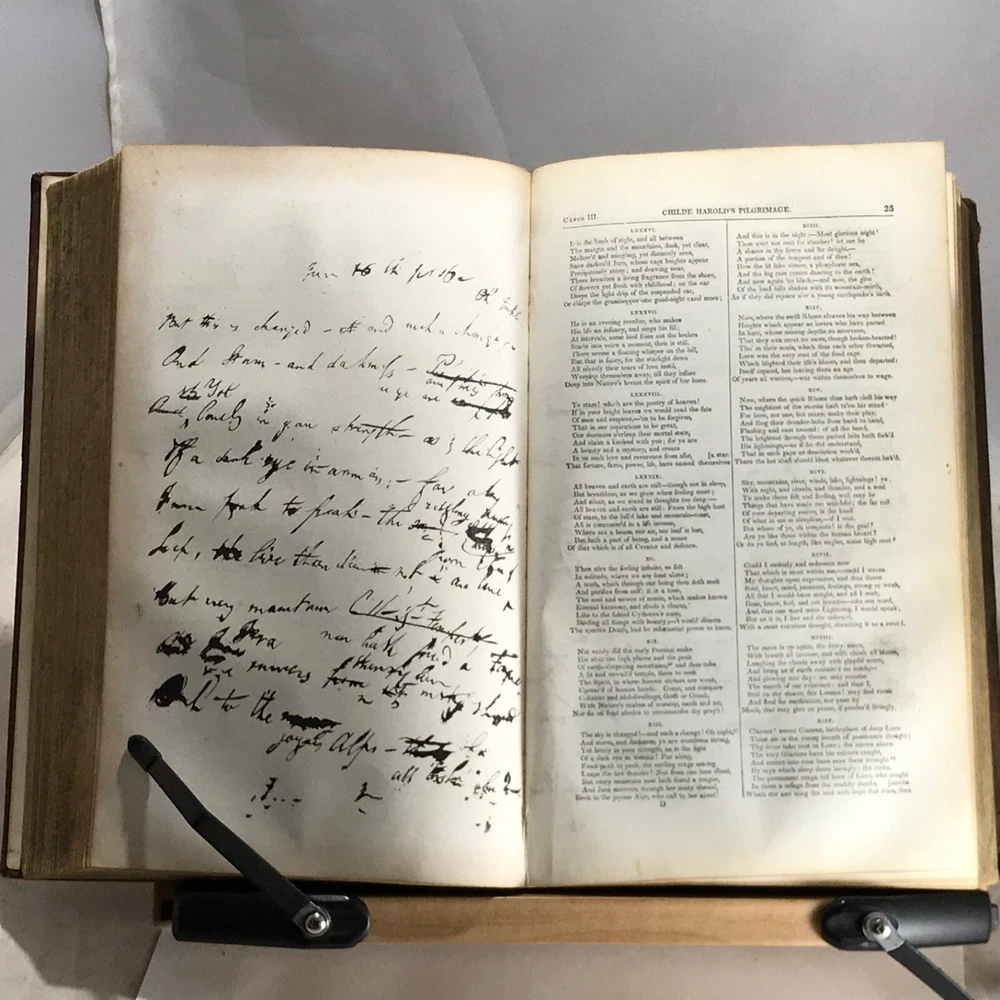 But this is changed – & and such a change
And Storm – and darkness –
Yet
lovely in your strength – as is the light
Of a dark eye in woman; – far along
From peak to peak – the
But every mountain
Back to the
joyous Alps –
CANTO III.
CHILDE HAROLD'S PILGRIMAGE.
25
LXXXVI.
It is the hush of night, and all between
Thy margin and the mountains, dusk, yet clear,
Mellow'd and mingling, yet distinctly seen,
Save darken'd Jura, whose capt heights appear
Precipitously steep; and drawing near,
There breathes a living fragrance from the shore,
Of flowers yet fresh with childhood; on the ear
Drops the light drip of the suspended oar,
Or chirps the grasshopper one good-night carol more;
LXXXVII.
He is an evening reveller, who makes
His life an infancy, and sings his fill;
At intervals, some bird from out the brakes
Starts into voice a moment, then is still.
There seems a floating whisper on the hill,
But that is fancy, for the starlight dews
All silently their tears of love instil,
Weeping themselves away, till they infuse
Deep into Nature's breast the spirit of her hues.
LXXXVIII.
Ye stars! which are the poetry of heaven!
If in your bright leaves we would read the fate
Of men and empires,—'tis to be forgiven,
That in our aspirations to be great,
Our destinies o'erleap their mortal state,
And claim a kindred with you; for ye are
A beauty and a mystery, and create
In us such love and reverence from afar, [a star.
That fortune, fame, power, life, have named themselves
LXXXIX.
All heaven and earth are still—though not in sleep,
But breathless, as we grow when feeling most;
And silent, as we stand in thoughts too deep:—
All heaven and earth are still: From the high host
Of stars, to the lull'd lake and mountain-coast,
All is concenter'd in a life intense,
Where not a beam, nor air, nor leaf is lost,
But hath a part of being, and a sense
Of that which is of all Creator and defence.
XC.
Then stirs the feeling infinite, so felt
In solitude, where we are least alone;
A truth, which through our being then doth melt
And purifies from self: it is a tone,
The soul and source of music, which makes known
Eternal harmony, and sheds a charm,
Like to the fabled Cytherea's zone,
Binding all things with beauty;—'t would disarm
The spectre Death, had he substantial power to harm.
XCI.
Not vainly did the early Persian make
His altar the high places and the peak
Of earth-o'ergazing mountains, and thus take
A fit and unwall'd temple, there to seek
The Spirit, in whose honour shrines are weak,
Uprear'd of human hands. Come, and compare
Columns and idol-dwellings, Goth or Greek,
With Nature's realms of worship, earth and air,
Nor fix on fond abodes to circumscribe thy pray'r!
XCII.
The sky is changed!—and such a change! Oh night,
And storm, and darkness, ye are wondrous strong,
Yet lovely in your strength, as is the light
Of a dark eye in woman! Far along,
From peak to peak, the rattling crags among
Leaps the live thunder! Not from one lone cloud,
But every mountain now hath found a tongue,
And Jura answers, through her misty shroud,
Back to the joyous Alps, who call to her aloud!
D
XCIII.
And this is in the night:—Most glorious night!
Thou wert not sent for slumber! let me be
A sharer in thy fierce and far delight,—
A portion of the tempest and of thee!
How the lit lake shines, a phosphoric sea,
And the big rain comes dancing to the earth!
And now again 'tis black,—and now, the glee
Of the loud hills shakes with its mountain-mirth,
As if they did rejoice o'er a young earthquake's birth.
XCIV.
Now, where the swift Rhone cleaves his way between
Heights which appear as lovers who have parted
In hate, whose mining depths so intervene,
That they can meet no more, though broken-hearted!
Tho' in their souls, which thus each other thwarted,
Love was the very root of the fond rage
Which blighted their life's bloom, and then departed:
Itself expired, but leaving them an age
Of years all winters,—war within themselves to wage.
XCV.
Now, where the quick Rhone thus hath cleft his way
The mightiest of the storms hath ta'en his stand
For here, not one, but many, make their play,
And fling their thunder-bolts from hand to hand,
Flashing and cast around: of all the band,
The brightest through these parted hills hath fork'd
His lightnings,—as if he did understand,
That in such gaps as desolation work'd,
There the hot shaft should blast whatever therein lurk'd.
XCVI.
Sky, mountains, river, winds, lake, lightnings! ye,
With night, and clouds, and thunder, and a soul
To make these felt and feeling, well may be
Things that have made me watchful; the far roll
Of your departing voices, is the knoll
Of what in me is sleepless,—if I rest.
But where of ye, oh tempests! is the goal?
Are ye like those within the human breast?
Or do ye find, at length, like eagles, some high nest?
XCVII.
Could I embody and unbosom now
That which is most within me,—could I wreak
My thoughts upon expression, and thus throw
Soul, heart, mind, passions, feelings, strong or weak,
All that I would have sought, and all I seek,
Bear, know, feel, and yet breathe—into one word,
And that one word were Lightning, I would speak;
But as it is, I live and die unheard,
With a most voiceless thought, sheathing it as a sword.
XCVIII.
The morn is up again, the dewy morn,
With breath all incense, and with cheek all bloom,
Laughing the clouds away with playful scorn,
And living as if earth contain'd no tomb,—
And glowing into day: we may resume
The march of our existence: and thus I,
Still on thy shores, fair Leman! may find room
And food for meditation, nor pass by
Much, that may give us pause, if ponder'd fittingly.
XCIX.
Clarens! sweet Clarens, birthplace of deep Love
Thine air is the young breath of passionate thought;
Thy trees take root in Love; the snows above
The very Glaciers have his colours caught,
And sunset into rose hues sees them wrought
By rays which sleep there lovingly: the rocks,
The permanent crags, tell here of Love, who sought
In them a refuge from the worldly shocks, [mocks.
Which stir and sting the soul with hope that woos, then